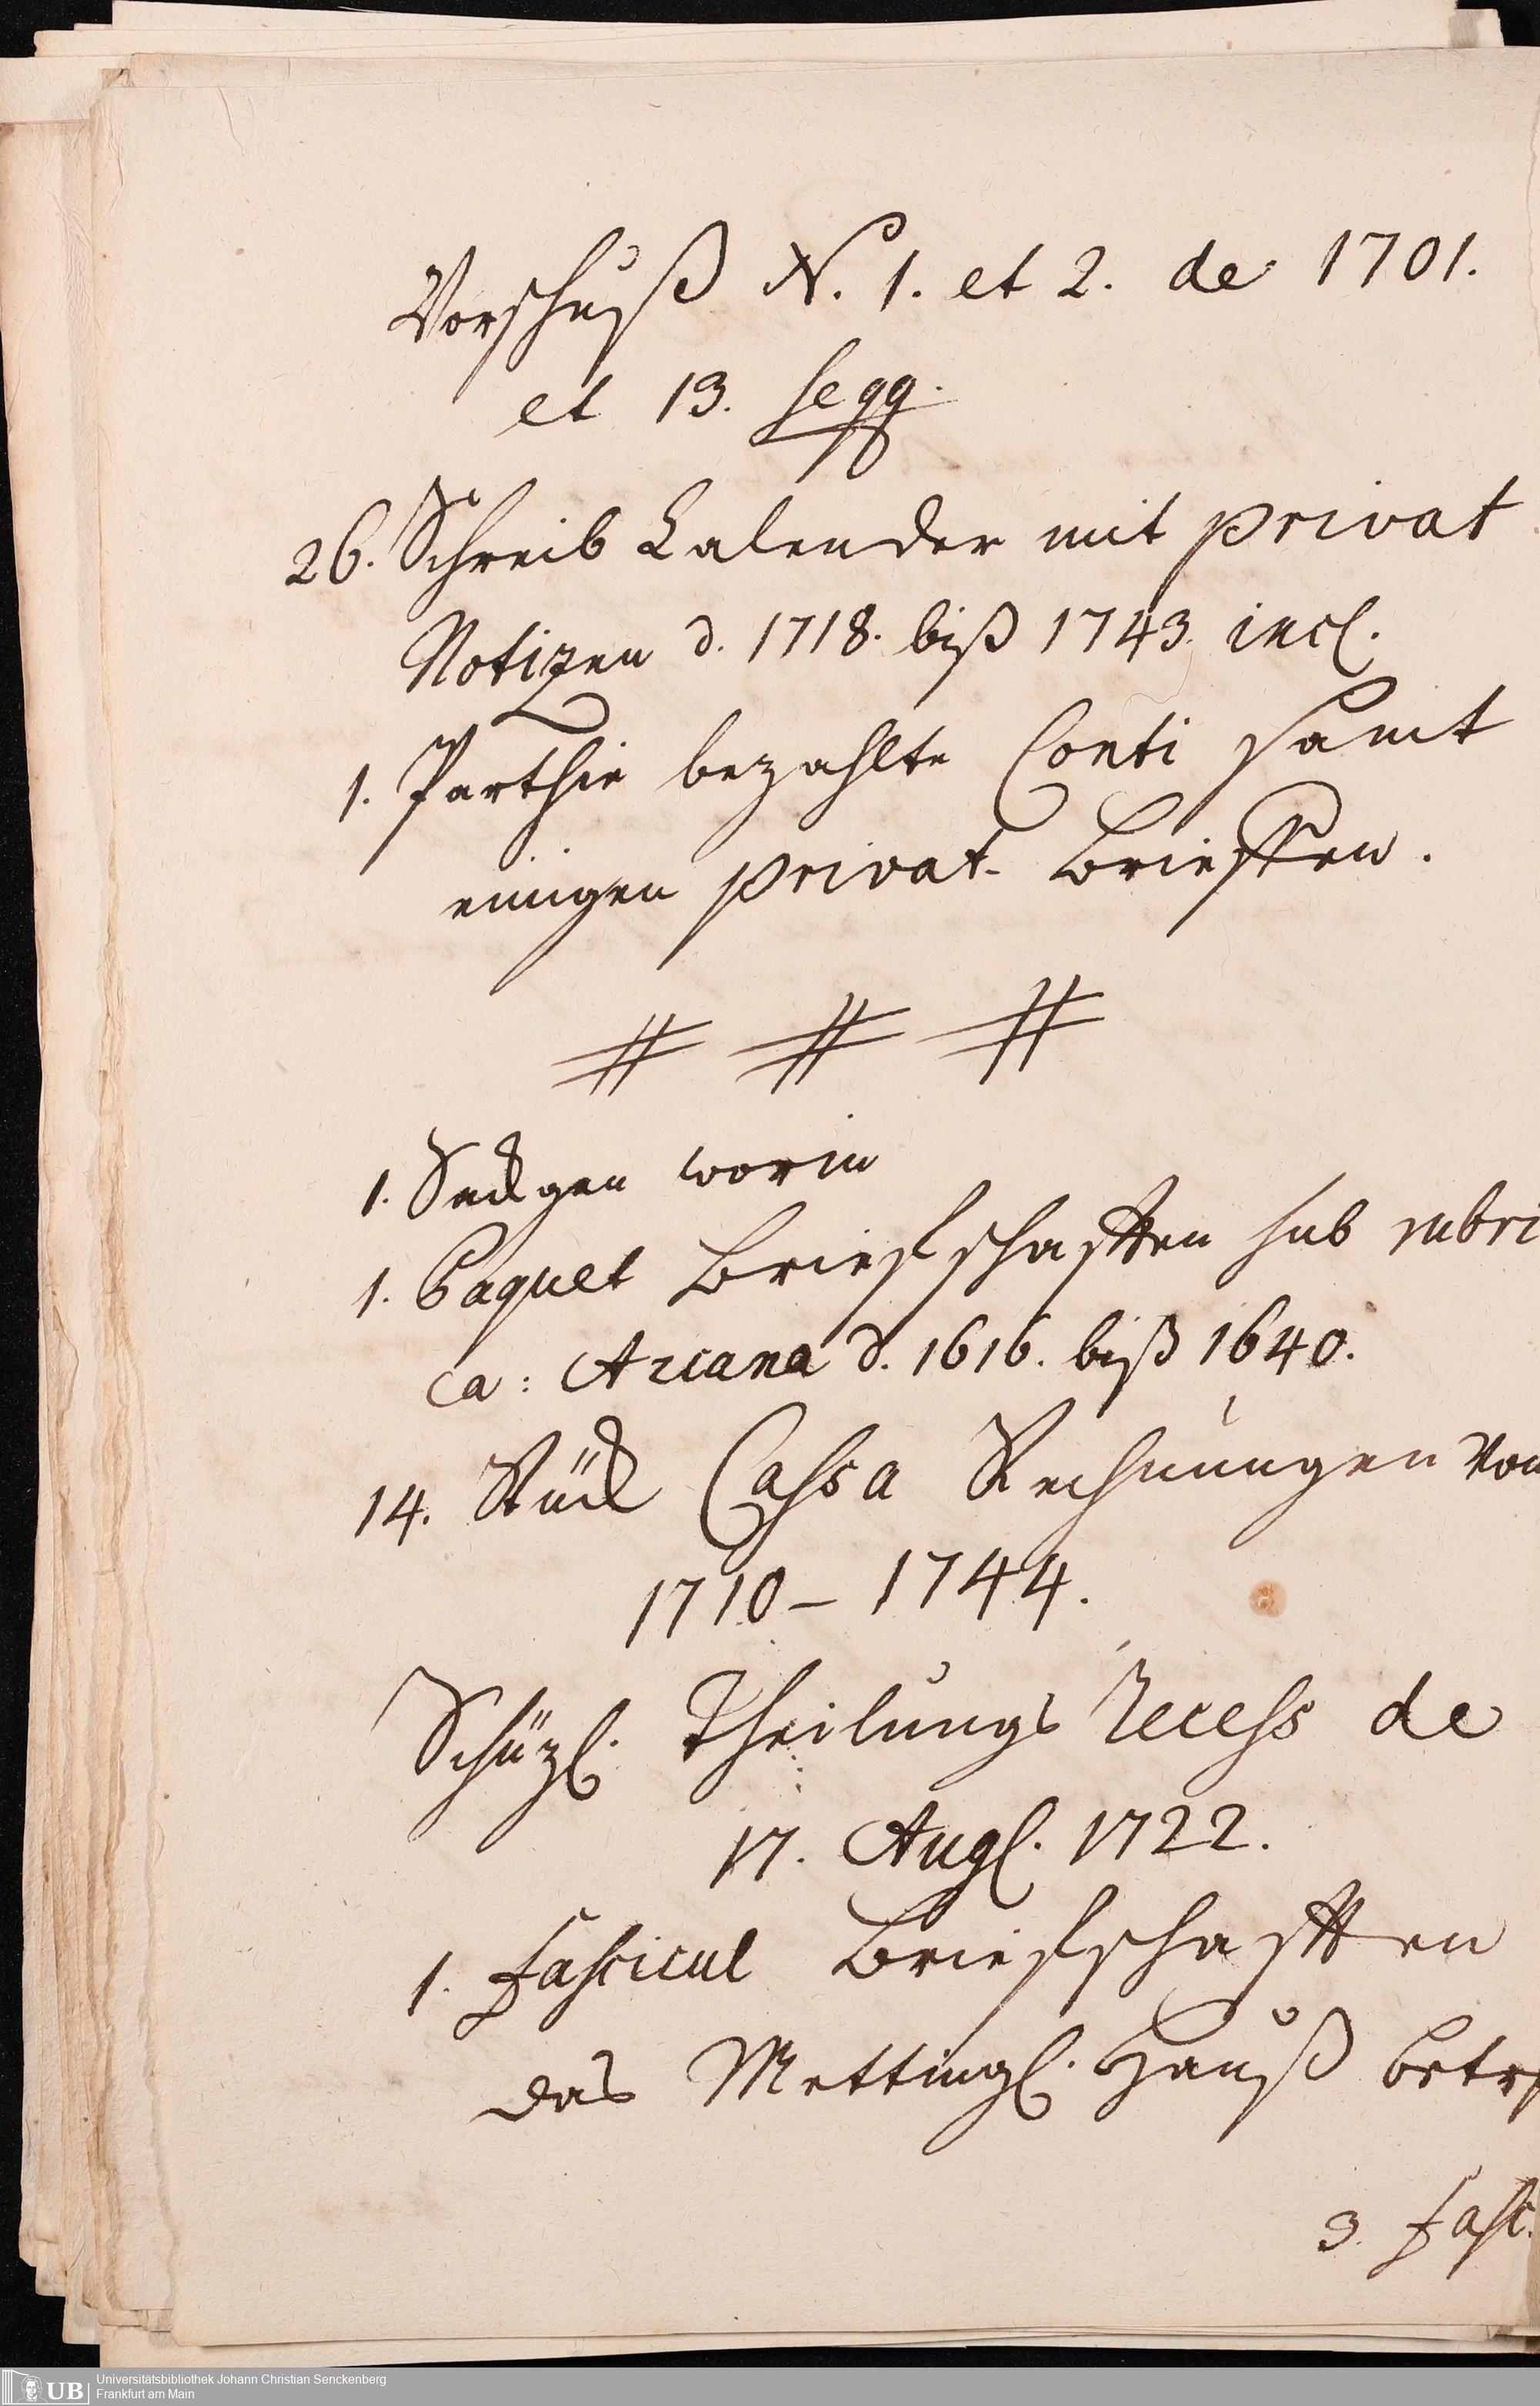 Vorschuß N. 1. et 2. de 1701.
et 13. seqq.
26. Schreib Calender mit privat
Notizen d. 1718. biß 1743. incl.
1. Parthie bezahlte Conti samt
einigen privat-Brieffen.
# # #
1. Säckgen worin
1. Paquet Briefschafften sub rubri
ca: Arcana d. 1616. biß 1640.
14. Stück Cassa Rechnungen von
1710 - 1744.
Schüzl. Theilungs Recess de
17. Augl. 1722.
1. Fascicul Briefschafften
das Mettingl. Hauß betr
3. Fasc.
UB
Universitätsbibliothek Johann Christian Senckenberg
Frankfurt am Main